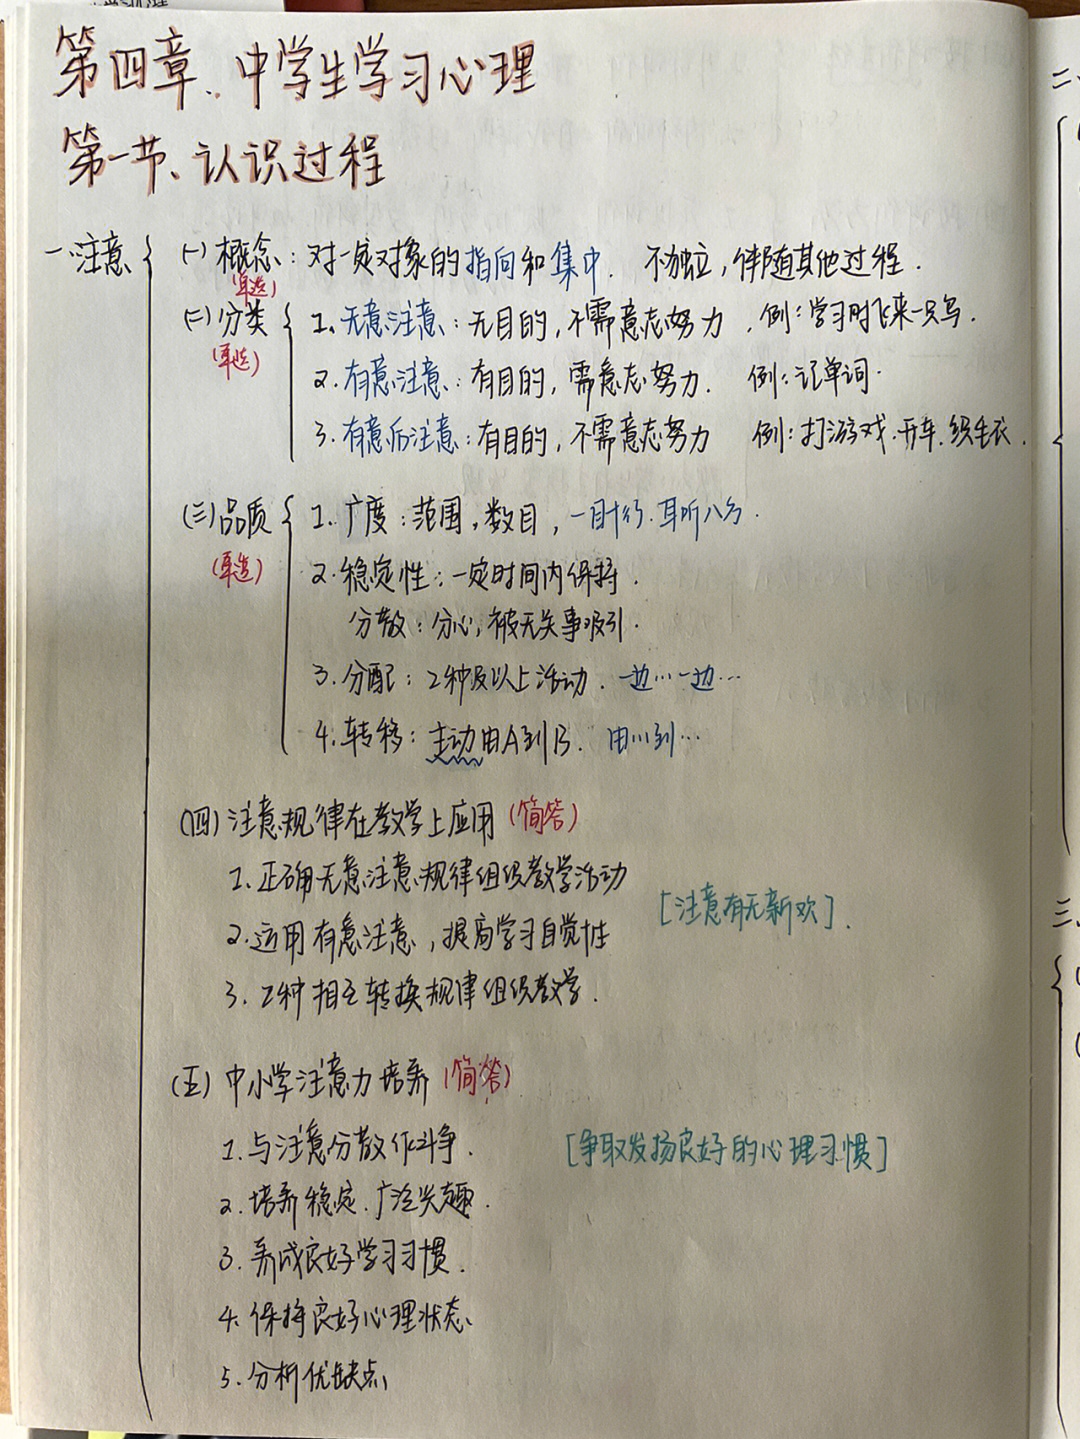 第四章、中学生学习心理
第一节、认识过程
一、注意
(一)概念：对一定对象的指向和集中．不独立，伴随其他过程．
(单选)
(二)分类
(单选)
1、无意注意：无目的，不需意志努力，例：学习时飞来一只鸟．
2．有意注意：有目的，需意志努力．例：记单词．
3．有意后注意：有目的，不需意志努力 例：打游戏．开车．织毛衣．
(三)品质
(单选)
1．广度：范围，数目，一目十行．耳听八方．
2．稳定性：一定时间内保持．
分散：分心，被无关事吸引．
3．分配：2种及以上活动．一边…一边…
4．转移：主动由A到B．由…到…
(四)注意规律在教学上应用(简答)
1．正确用无意注意规律组织教学活动
2．运用有意注意，提高学习自觉性
3．2种相互转换规律组织教学．
[注意有无新欢]．
(五)中小学注意力培养(简答)
1．与注意分散作斗争．
2．培养稳定．广泛兴趣．
3．养成良好学习习惯．
4．保持良好心理状态．
5．分析优缺点
[争取发扬良好的心理习惯]
二、
三、